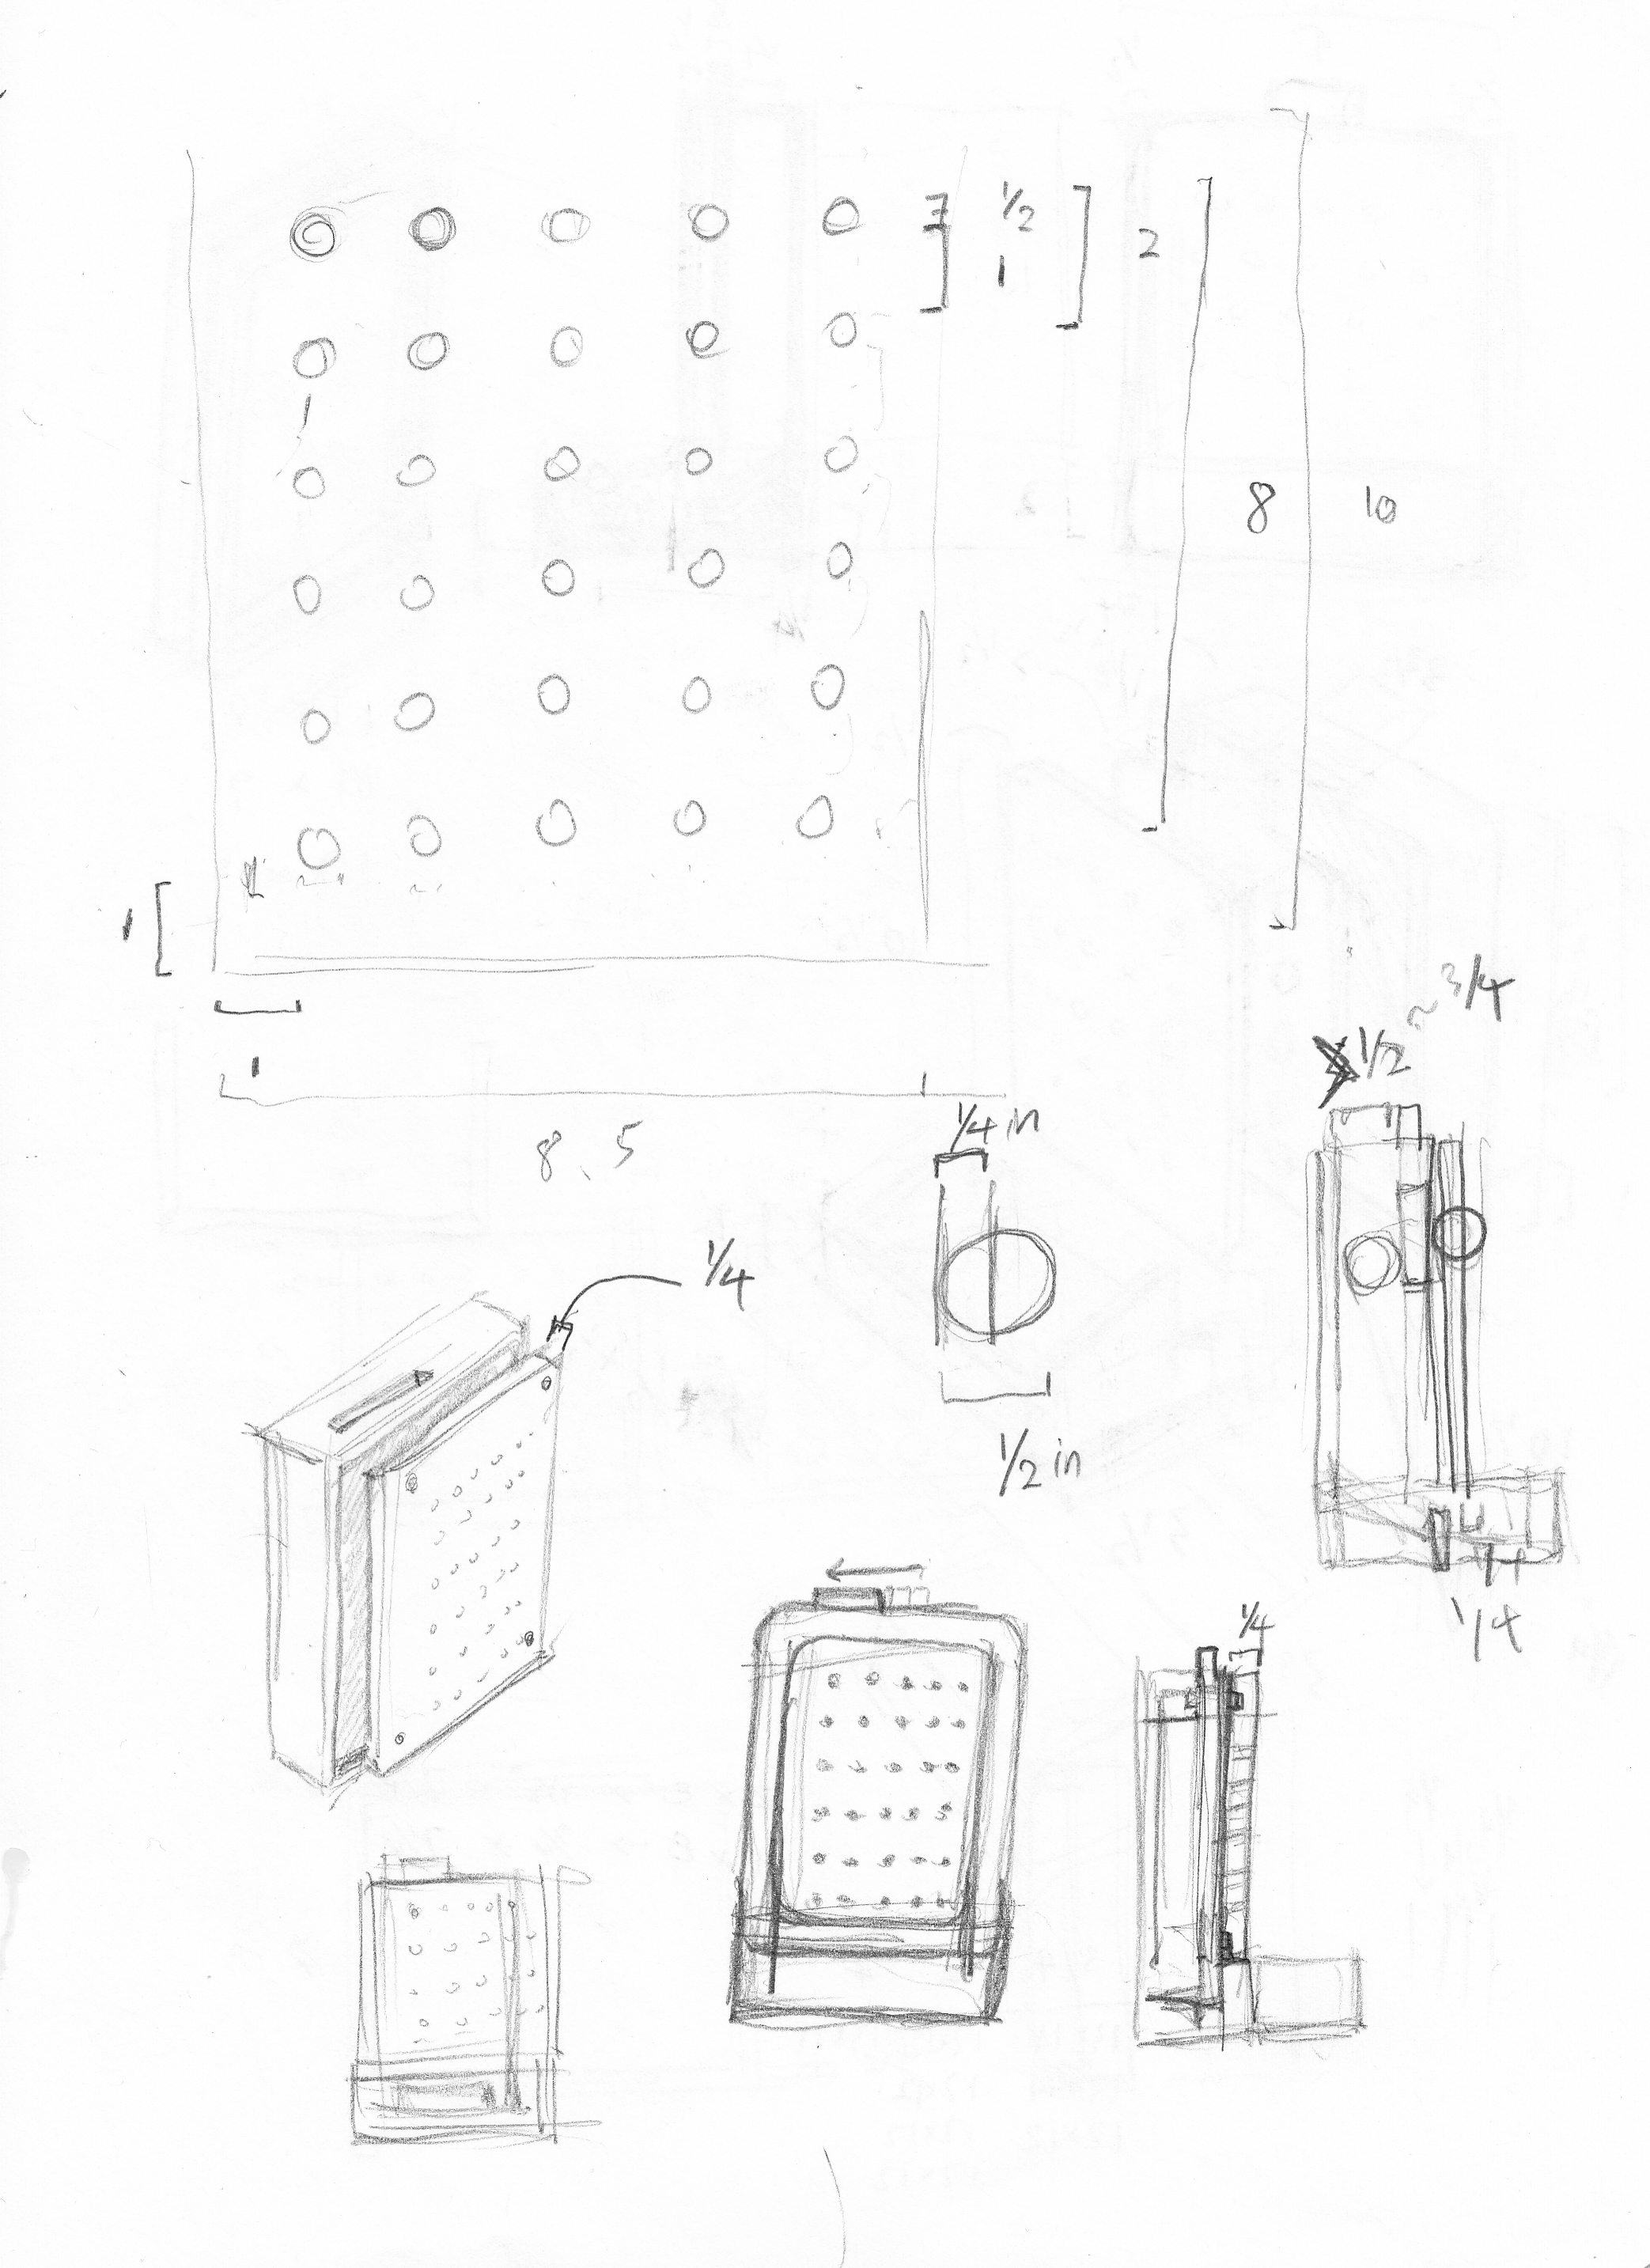 1/2
1
2
8
10
1
1
8.5
~3/4
1/2
1/4 in
1/2 in
1/4
1/4
1/4
1/4